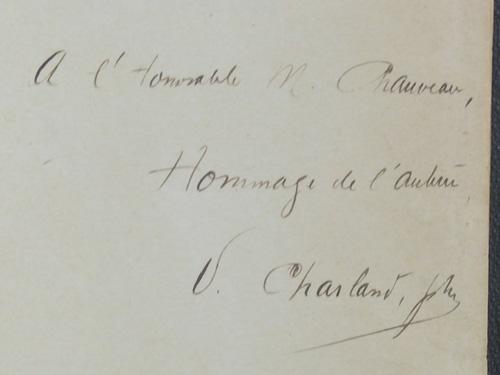 A l'Honorable M. Chauveau,
Hommage de l'auteur
V. Charland, ptre